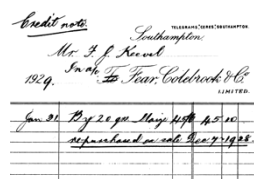 Credit note.
TELEGRAMS, "CERES", SOUTHAMPTON.
Southampton,
Mr. F. J. Keevil
1929. In a/c To Fear, Colebrook & Co.
LIMITED.
Jan 31 By 20 qrs Maize 45/6 45 10
repurchased on sale Dec 7-1928